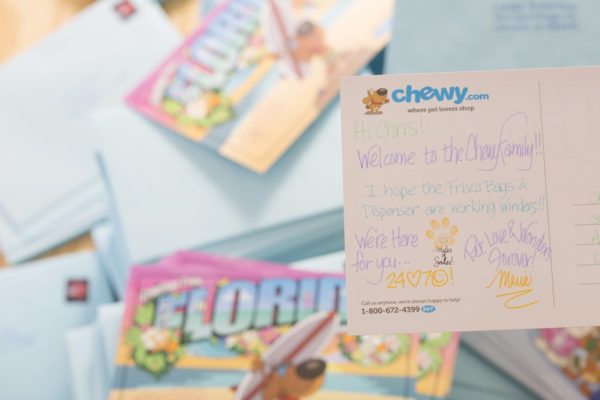 FLORI
chewy.com
where pet lovers shop
Hi Chris!
Welcome to the Chewy Family!!
I hope the Frisco Bags &
Dispenser are working wonders!!
We're Here
for you...
24♡7☺!
Miles
&
Smiles!
Pet Love & Wonders
forever!
Maria
Call us anytime, we're always happy to help!
1-800-672-4399 24/7
FLORID